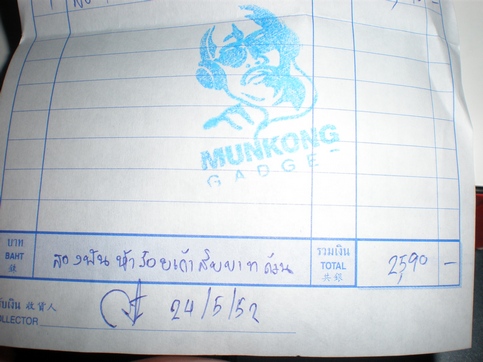 MUNKONG
GADGET
บาท
BAHT
สองพันห้าร้อยเก้าสิบบาทถ้วน
รวมเงิน
TOTAL
共銀
2,590 -
收貨人
COLLECTOR
24/5/52